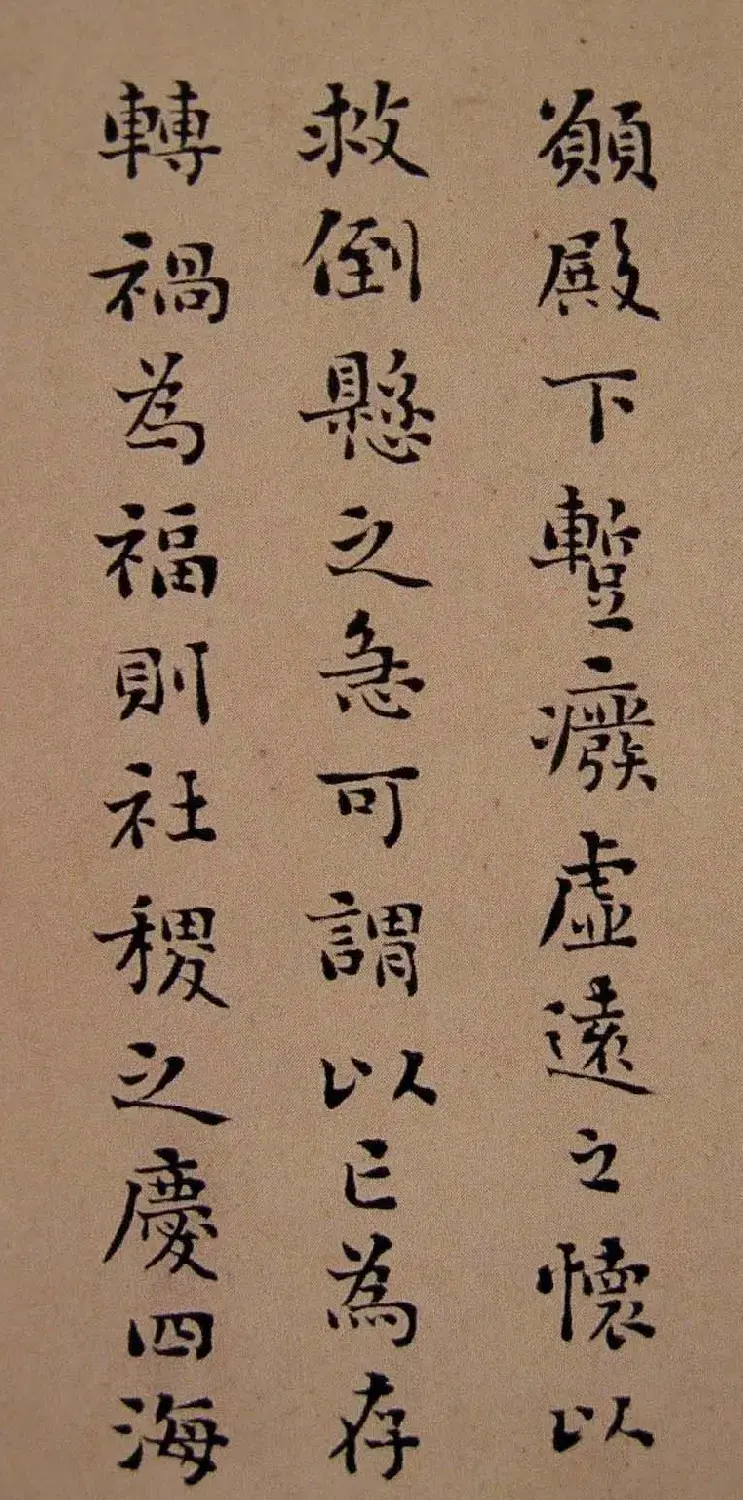 願殿下蹔癈虛遠之懷以
救倒懸之急可謂以亡為存
轉禍為福則社稷之慶四海